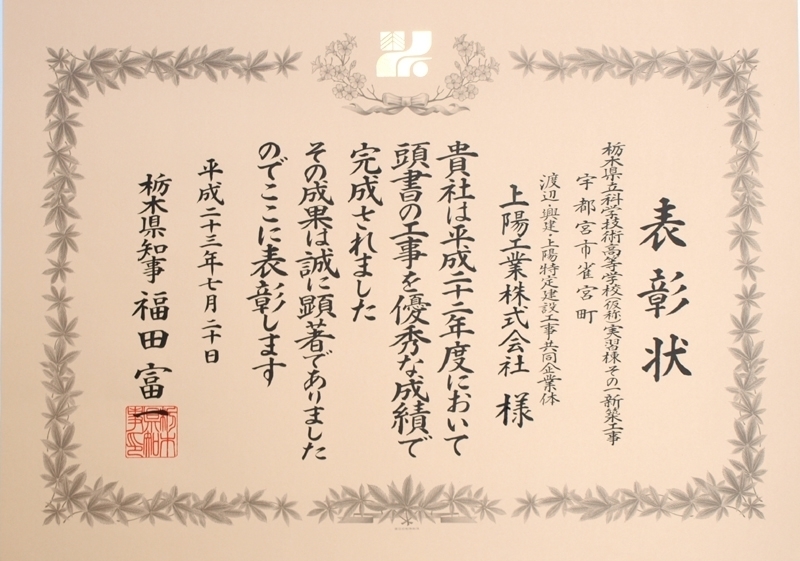 表彰状
栃木県立科学技術高等学校(仮称)実習棟その一新築工事
宇都宮市雀宮町
渡辺・興建・上陽特定建設工事共同企業体
上陽工業株式会社 様
貴社は平成二十二年度において
頭書の工事を優秀な成績で
完成されました
その成果は誠に顕著でありました
のでここに表彰します
平成二十三年七月二十日
栃木県知事 福田富一
栃木県知事印